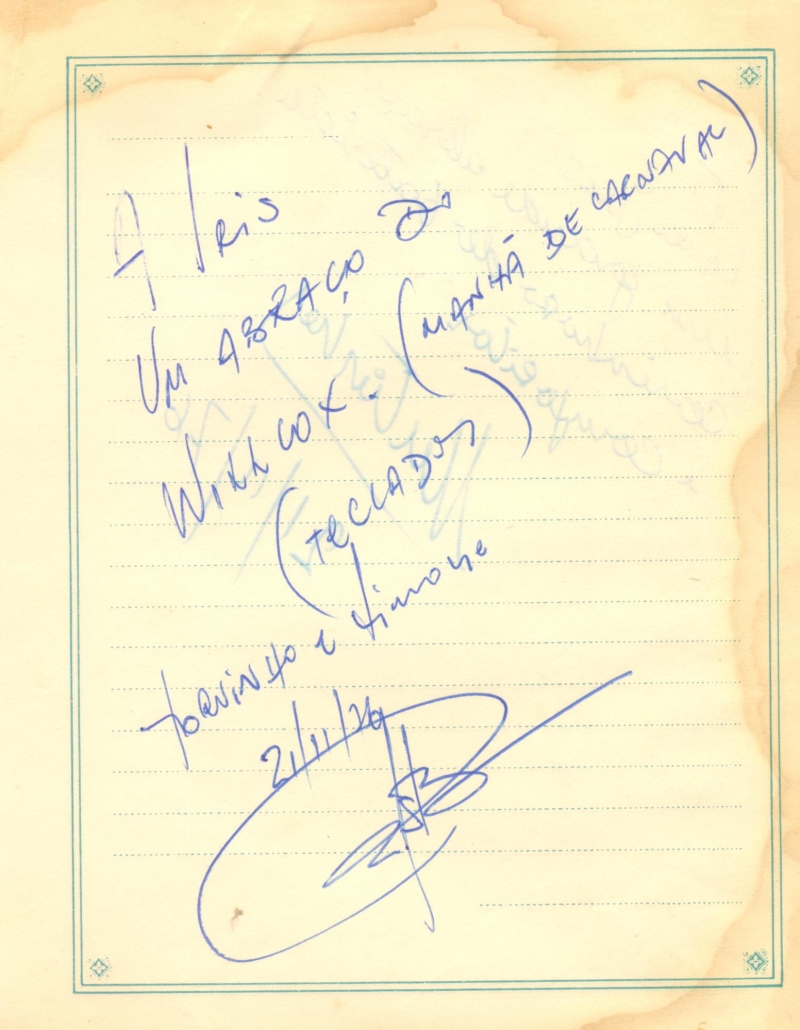 A Iris
UM ABRAÇO DO
WILLCOX. (MANHÃ DE CARNAVAL)
(TECLADOS)
TORVINHO e Simone
21/11/76